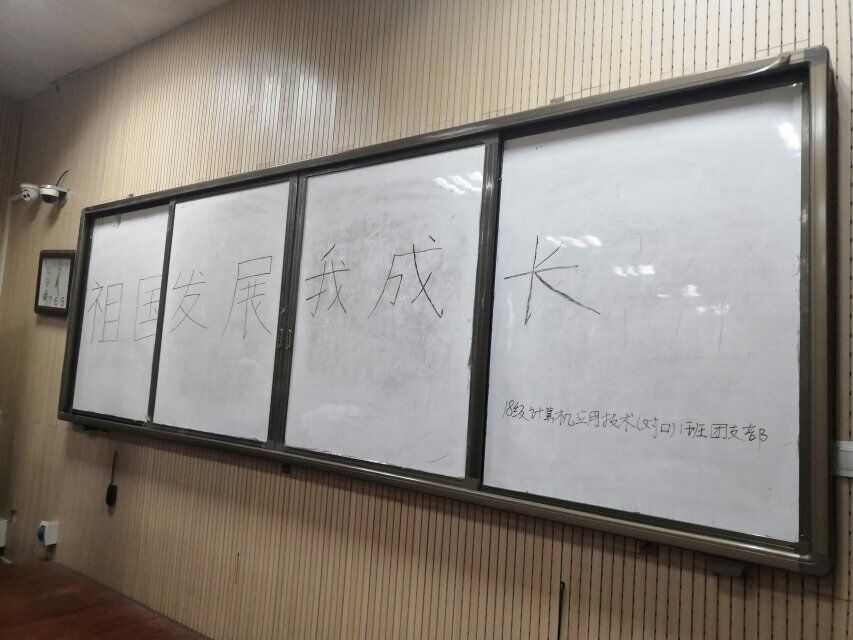 祖国发展我成长
18级计算机应用技术(对口)1班团支部